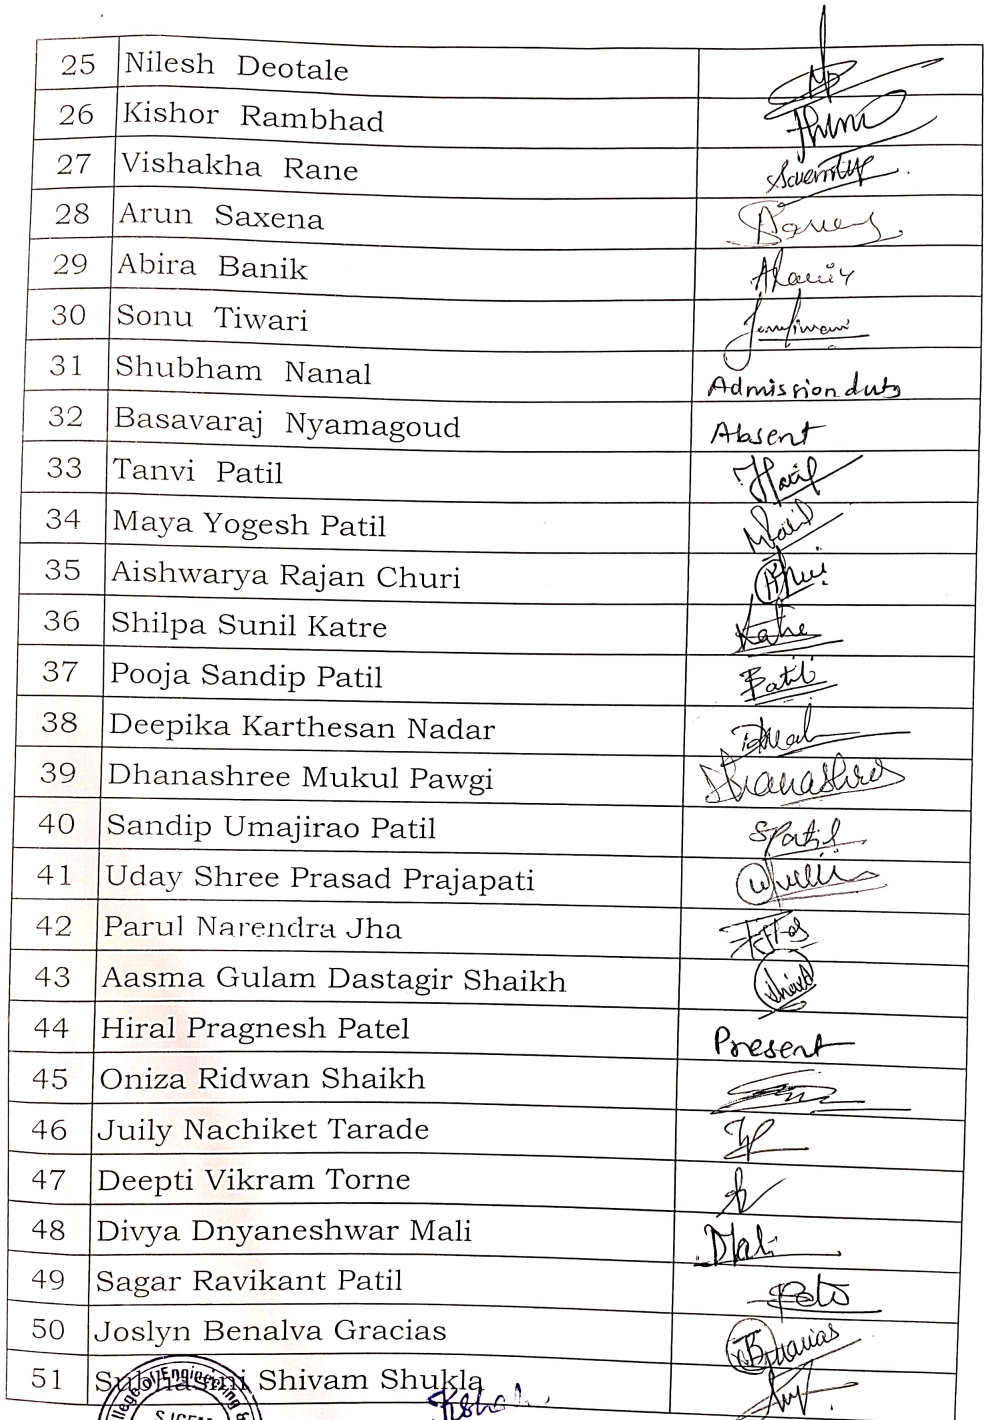 25 Nilesh Deotale
26 Kishor Rambhad
27 Vishakha Rane
28 Arun Saxena
29 Abira Banik
30 Sonu Tiwari
31 Shubham Nanal Admission duty
32 Basavaraj Nyamagoud Absent
33 Tanvi Patil
34 Maya Yogesh Patil
35 Aishwarya Rajan Churi
36 Shilpa Sunil Katre Katre
37 Pooja Sandip Patil Patil
38 Deepika Karthesan Nadar
39 Dhanashree Mukul Pawgi Dhanashree
40 Sandip Umajirao Patil SPatil
41 Uday Shree Prasad Prajapati
42 Parul Narendra Jha
43 Aasma Gulam Dastagir Shaikh
44 Hiral Pragnesh Patel Present
45 Oniza Ridwan Shaikh
46 Juily Nachiket Tarade
47 Deepti Vikram Torne
48 Divya Dnyaneshwar Mali DMali
49 Sagar Ravikant Patil
50 Joslyn Benalva Gracias
51 Shivam Shukla
of Engineering &
SJCEM